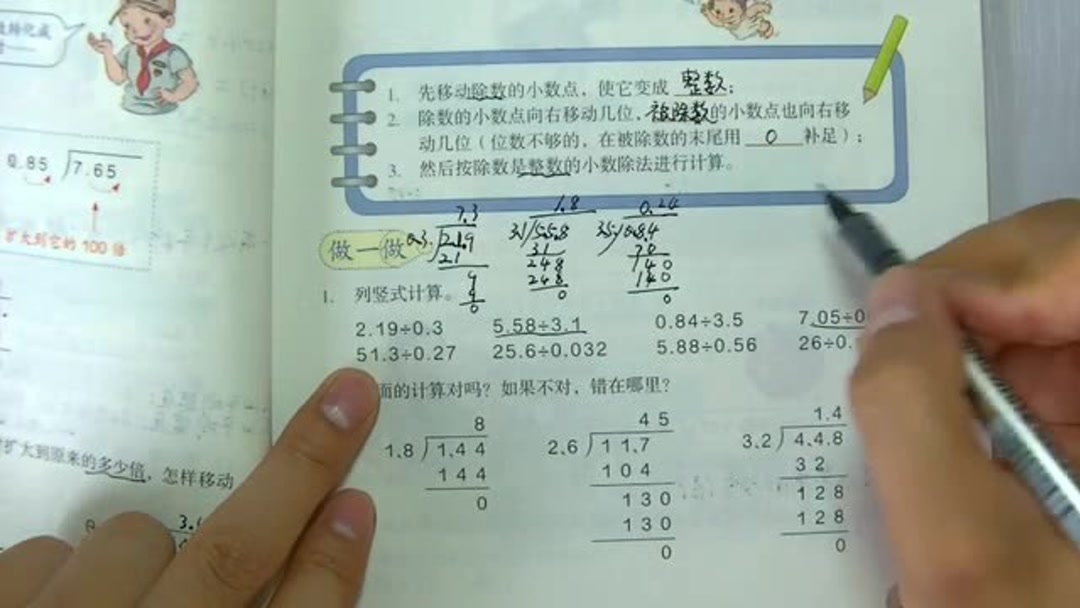 0.85 7.65
扩大到它的 100 倍
扩大到原来的多少倍，怎样移动
1. 先移动除数的小数点，使它变成 整数；
2. 除数的小数点向右移动几位，被除数的小数点也向右移
动几位（位数不够的，在被除数的末尾用 0 补足）；
3. 然后按除数是整数的小数除法进行计算。
做一做
7.3 1.8 0.24
0.3. 21.9 31 55.8 35 0.8.4
21 31 70
9 248 140
9 248 140
0 0 0
1. 列竖式计算。
2.19÷0.3 5.58÷3.1 0.84÷3.5 7.05÷0
51.3÷0.27 25.6÷0.032 5.88÷0.56 26÷0.
面的计算对吗？如果不对，错在哪里？
8 4 5 1.4
1.8 1.4 4 2.6 1 1.7 3.2 4.4.8
1 4 4 1 0 4 3 2
0 1 3 0 1 2 8
1 3 0 1 2 8
0 0